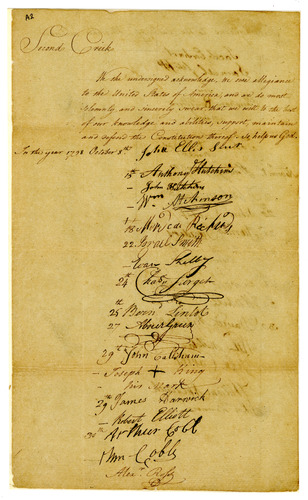 A2
Second Creek
We the undersigned acknowledge, or owe allegiance
to the United States of America, and we do most
solemnly, and sincerely swear, that we will to the best
of our knowledge and abilities, support, maintain
and defend the Constitution thereof. So help us God.
In the year 1798 October 8th John Ellis
15 Anthony Hutchins
- John Hutchins
- Wm Atchinson
18
22 Israel Smith
- Evan Shelby
24th Chas Surget
25th Lintot
27 Abner Green
29th John Callihan
- Joseph + King
- his Mark
29th James Harwick
- Robert Elliott
30th Arthur Cobb
Wm Cobb
Alexr Ross